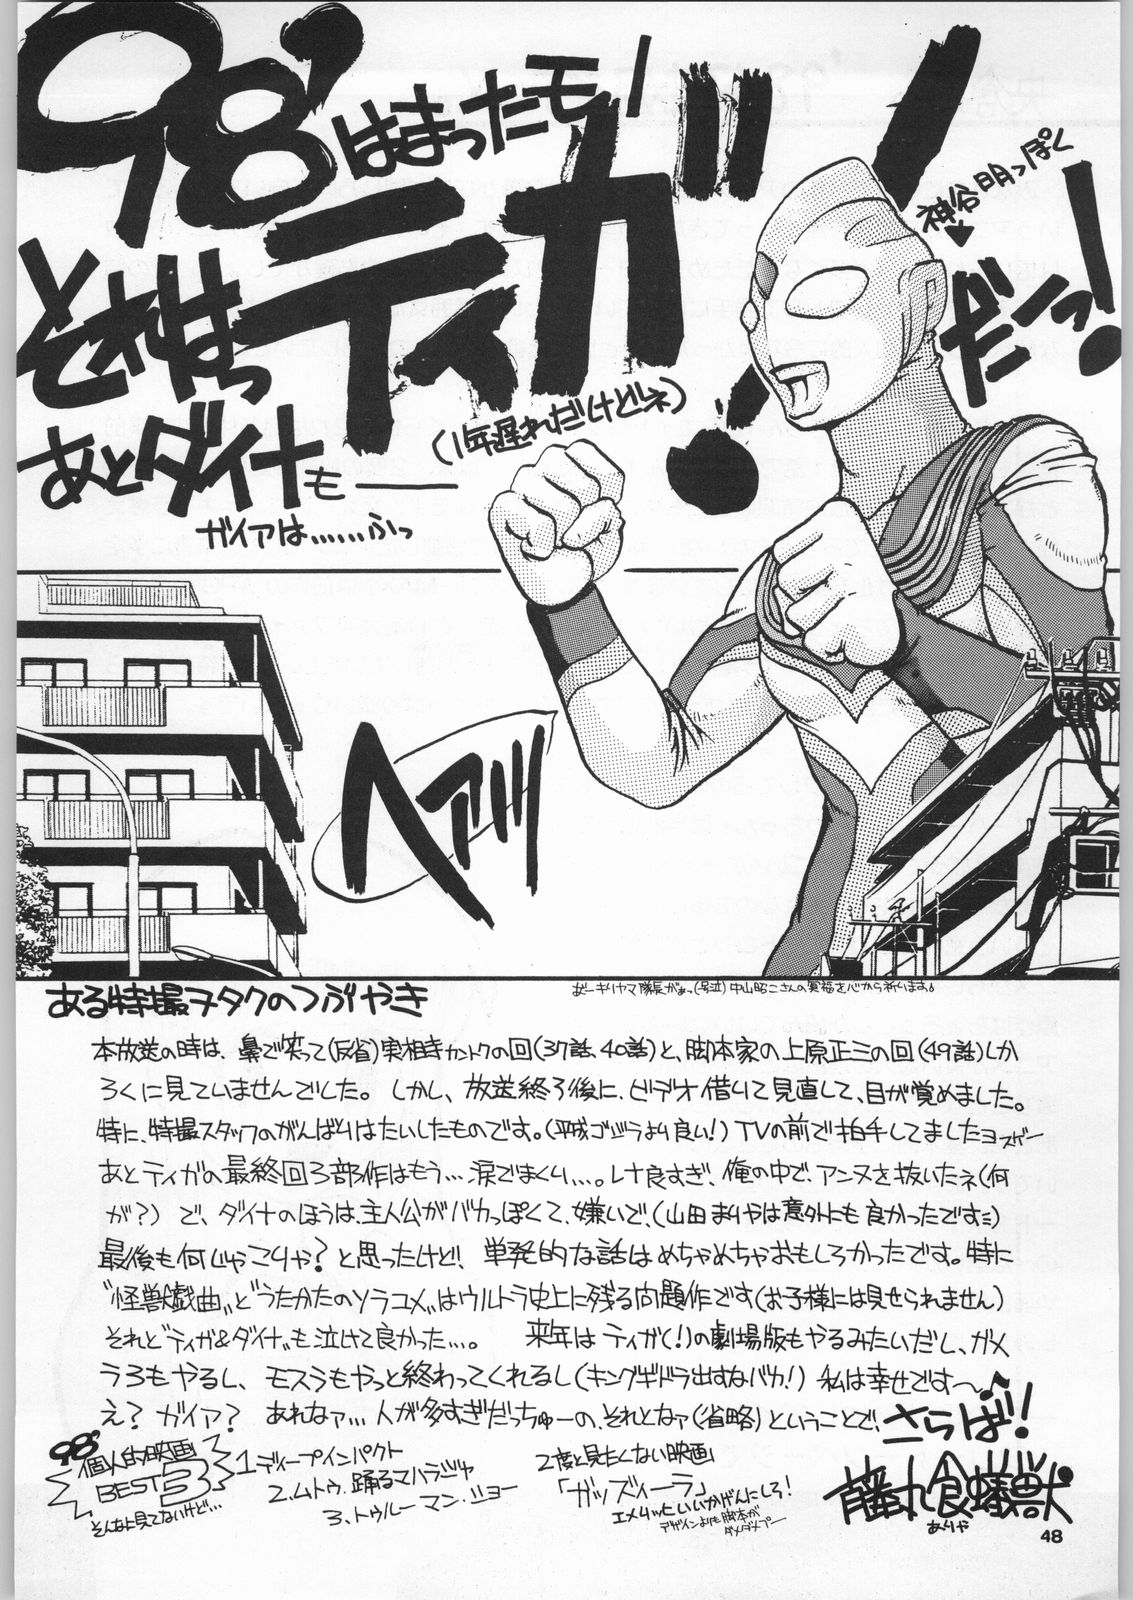 98'はまったモノ
それはっ
ティガ!
だっ!
あとダイナもー
(1年遅れだけどネ)
ガイアは……ふっ
神谷明っぽく
ヘアッ
ある特撮ヲタクのつぶやき
おーキリヤマ隊長がぁっ(号泣)中山昭二さんの冥福を心から祈います。
本放送の時は、鼻で笑って(反省)実相寺カントクの回(37話、40話)と、脚本家の上原正三の回(49話)しか
ろくに見ていませんでした。しかし、放送終了後に、ビデオ借りて見直して、目が覚めました。
特に、特撮スタッフのがんばりはたいしたものです。(平成ゴジラより良い!)TVの前で拍手してましたヨスゲー
あとティガの最終回3部作はもう…涙でまくり…。レナ良すぎ、俺の中で、アンヌを抜いたネ(何
が?)で、ダイナのほうは、主人公がバカっぽくて、嫌いで、(山田まりやは意外にも良かったです)
最後も何じゃこりゃ?と思ったけど!単発的な話はめちゃめちゃおもしろかったです。特に
"怪獣戯曲"と"うたかたのソラユメ"はウルトラ史上に残る問題作です(お子様には見せられません)
それと"ティガ&ダイナ"も泣けて良かった…。来年はティガ(!)の劇場版もやるみたいだし、ガメ
ラ3もやるし、モスラもやっと終わってくれるし(キングギドラ出すなバカ!)私は幸せです〜♪
え?ガイア?あれなァ…人が多すぎだっちゅーの、それとなァ(省略)ということで、さらば!!
98'個人的映画
BEST3
そんなに見てないけど…
1.ディープインパクト
2.ムトゥ踊るマハラジャ
3.トゥルーマン・ショー
2度と見たくない映画
「ガッズィーラ」
エメリッヒいいかげんにしろ!
デザインよりも脚本が
ダメダメプー
食蟻獣
ありくい
48